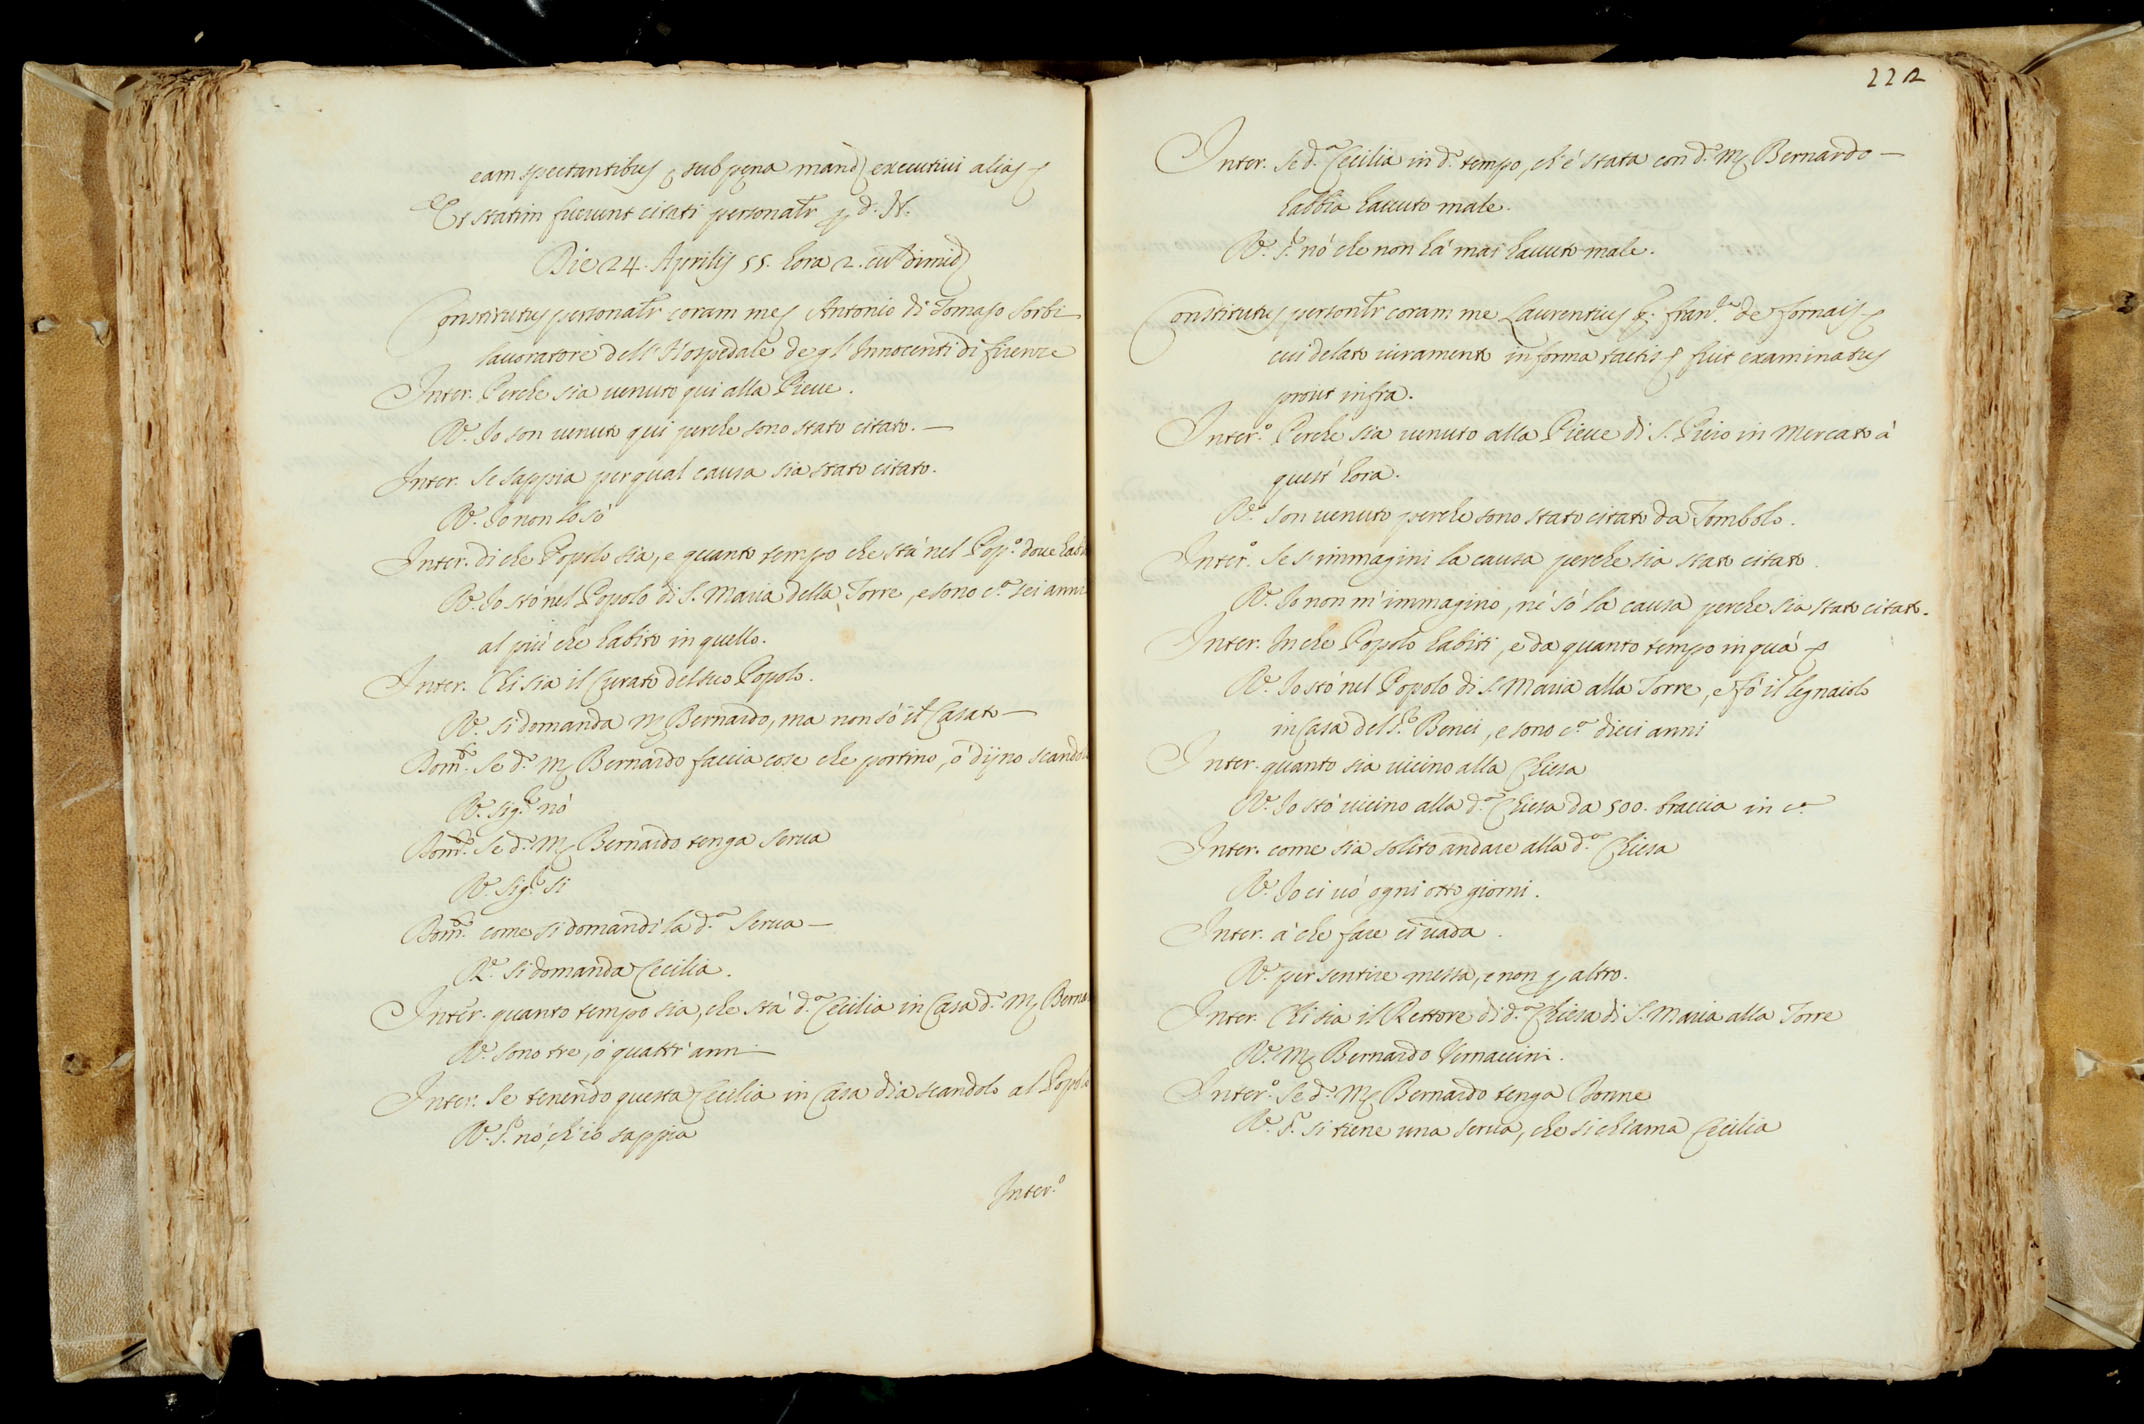 eam spectantibus & sub pena mand. executivi alias &
Et statim fuerunt citati personalr p d. N.
Die 24. Aprilis 55. hora 2. cu dimid.
Constitutus personalr coram me & Antonio di Tomaso Sorbi
lavoratore dell' Hospedale degl' Innocenti di firenze
Inter. Perche sia venuto qui alla Pieve.
Re. Io son venuto qui perche sono stato citato.—
Inter. Se sappia per qual causa sia stato citato.
Re. Io non lo sò
Inter. di che Popolo sia, e quanto tempo che stà nel Pop.o dove
Re. Io stò nel Popolo di S. Maria della Torre, e sono c.a sei anni
al più che habito in quello.
Inter. Chi sia il Curato del suo Popolo.
Re. si domanda M. Bernardo, ma non sò il Casato—
Dom.o Se d.o M. Bernardo faccia cose che portino, ò dijno
Re. Sig.re nò
Dom.o Se d.o M. Bernardo tenga serva
Re. Sig.re si
Dom.o come si domandi la d.a Serva—
Re. si domanda Cecilia.
Inter. quanto tempo sia, che stà d.a Cecilia in Casa d.o M.
Re. sono tre, ò quattr' anni—
Inter. Se tenendo questa Cecilia in Casa dia scandolo al Popolo
Re. S.r nò, ch' io sappia
Inter.o
222
Inter. Se d.a Cecilia in d.o tempo, ch' è stata con d.o M. Bernardo—
habbia hauuto male.
Re. S.r nò che non hà mai hauuto male.
Constitutus personlr coram me Laurentius q. fran.ci de fornais &
cui delato iuramento in forma tactis & fuit examinatus
prout infra.
Inter.o Perche sia venuto alla Pieve di S. Piero in Mercato à
quest' hora.
Re. son venuto perche sono stato citato da Tombolo.
Inter.o Se s' immagini la causa perche sia stato citato.
Re. Io non m' immagino, nè sò la causa perche sia stato citato.
Inter. In che Popolo habiti, e da quanto tempo in quà &
Re. Io stò nel Popolo di S. Maria alla Torre, e fò il legnaiolo
in Casa del S.r Benci, e sono c.a dieci anni
Inter. quanto sia vicino alla Chiesa
Re. Io stò vicino alla d.a Chiesa da 500. braccia in c.a
Inter. come sia solito andare alla d.a Chiesa
Re. Io ci vò ogni otto giorni.
Inter. à che fare ci vada.
Re. per sentire messa, e non p altro.
Inter. Chi sia il Rettore di d.a Chiesa di S. Maria alla Torre
Re. M. Bernardo Vernaccini.
Inter.o Se d.o M. Bernardo tenga Donne
Re. S.r si tiene una serva, che si chiama Cecilia